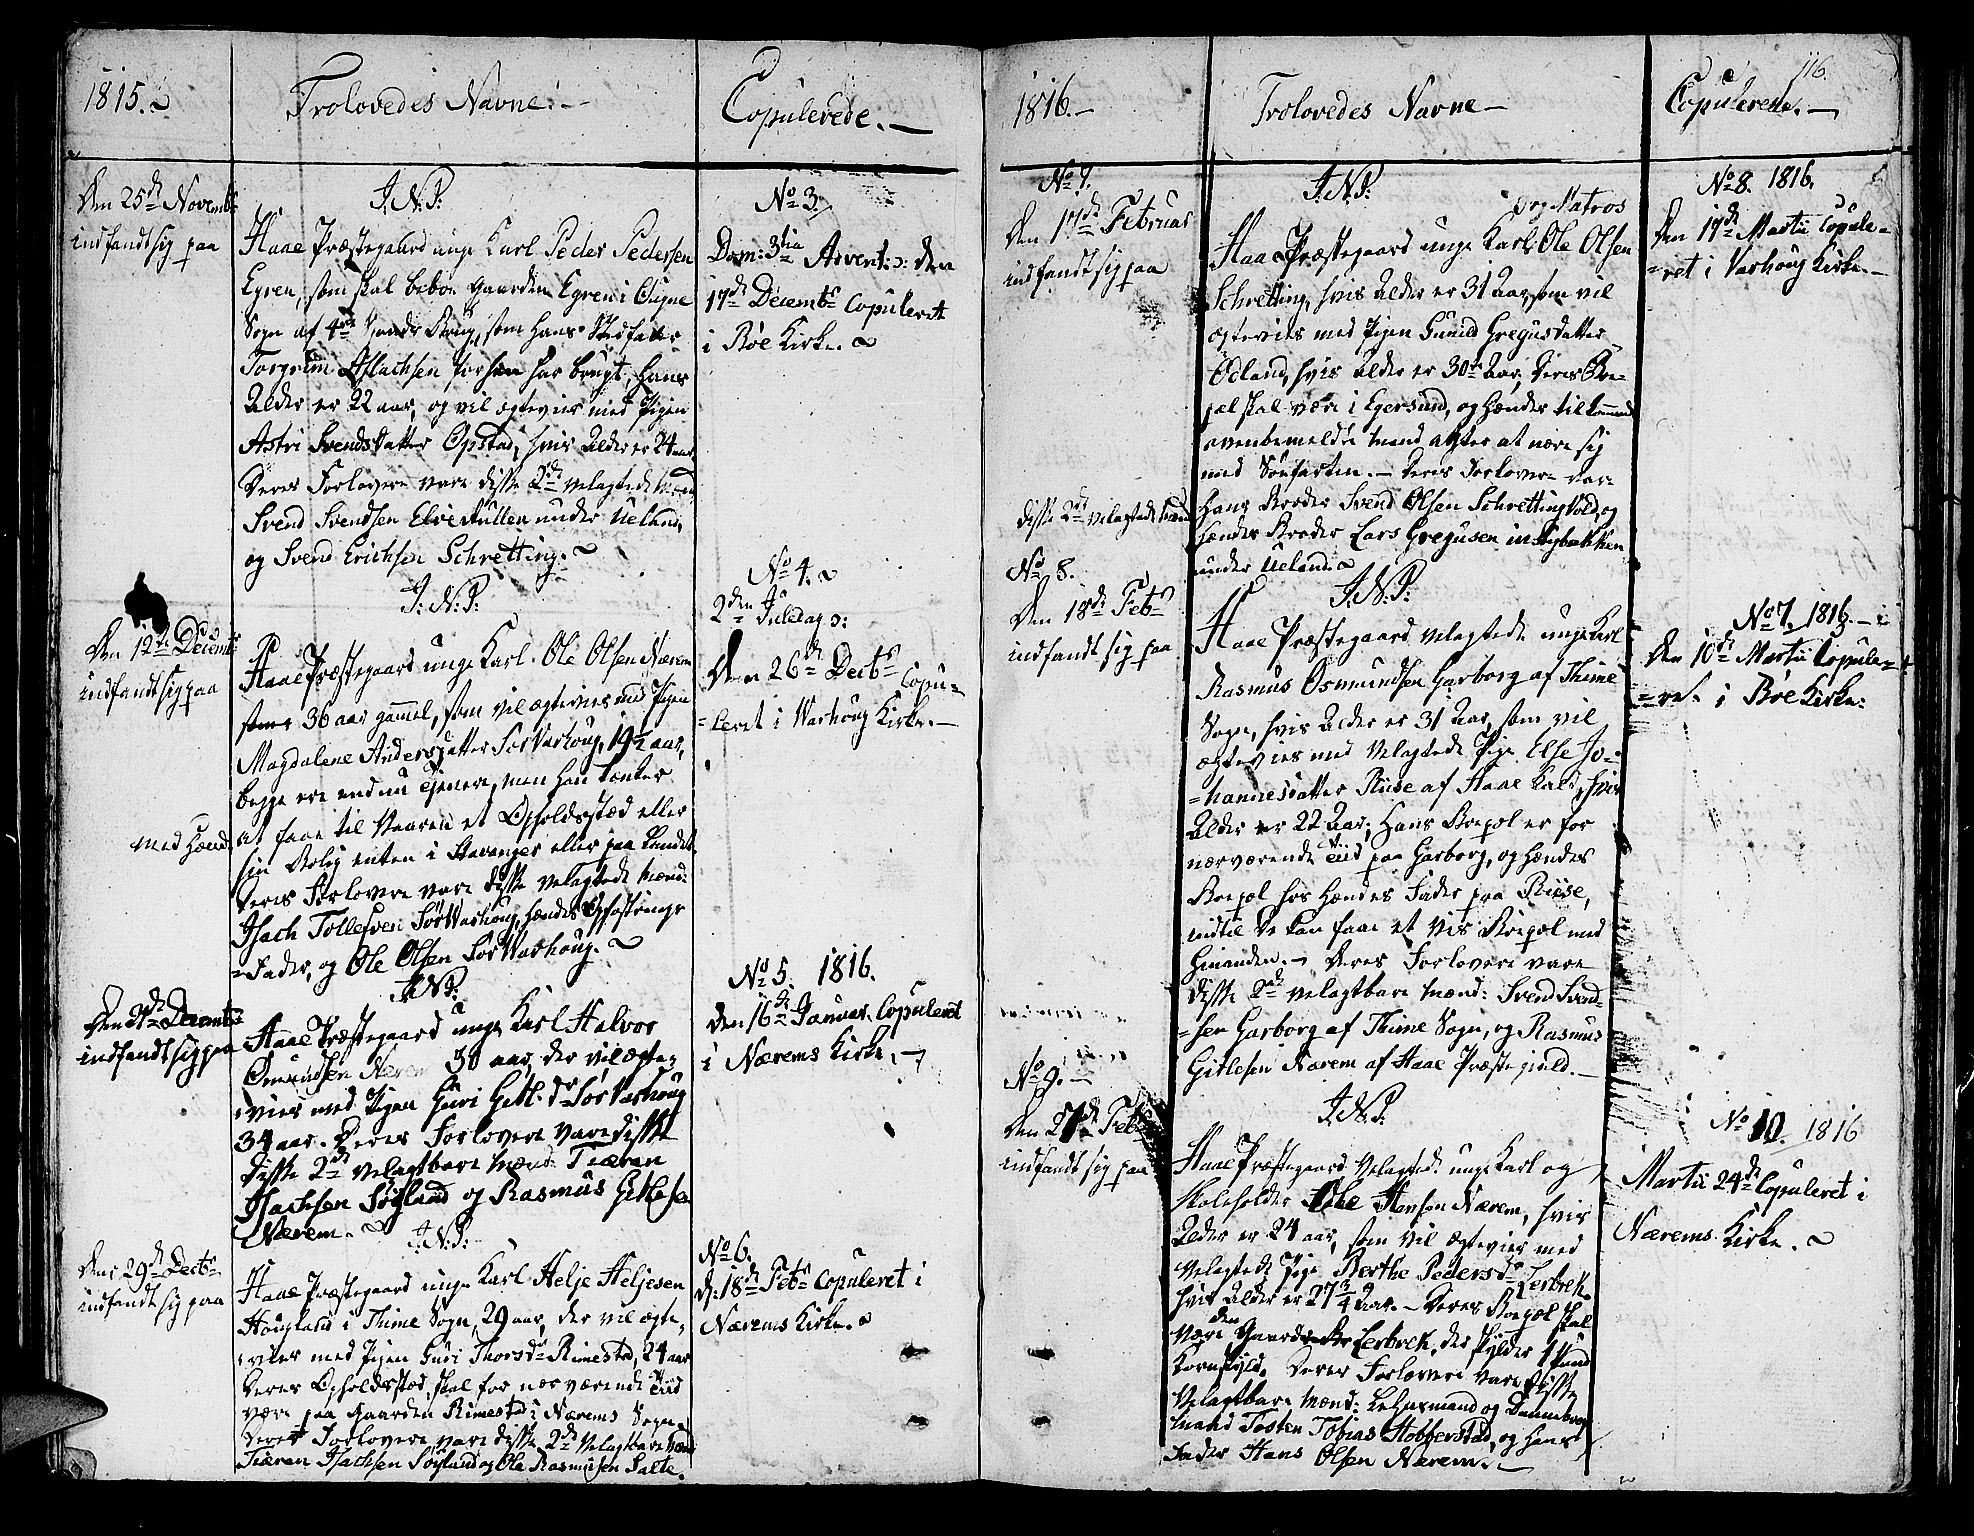 1815.
Trolovedes Navne.
Copulerede.
Den 25de Novembr
indfandt sig paa
J. N. P.
Haae Præstegaard unge Karl Peder Pedersen
Egren, som skal beboe Gaarden Egren i Ougne
Sogn af
Torgrim Aslachsen før har brugt, hans
Alder er 22 aar, og vil ægtevies med Pigen
Astri Svendsdatter Opstad, hvis Alder er 24 aar,
Deres Forlovere vare disse 2de velagtede Mænd,
Svend Svendsen under Ueland,
og Svend Erichsen Schretting.
No 3.
Dom: 3tia Advent: den
17de Decembr Copuleret
i Bøe Kirke.
Den 12te Decembr
indfandt sig paa
J. N. P.
Haae Præstegaard unge Karl Ole Olsen Nærem
36 aar gammel, som vil ægtevies med Pigen
Magdalene Andersdatter Sørvarhoug, 19½ aar,
begge ere endnu Tjenere, men han tænker
med hende
at faae til Vaaren et Opholdssted eller
sin Bolig enten i Stavanger eller paa Landet.
Deres Forlovere vare disse velagtede Mænd:
Isach Tollefsen Sørvarhoug, hendes Opfostrings
=Fader, og Ole Olsen Sørvarhoug.
No 4.
2den Juledag
Den 26de Decbr Copu-
=leret i Varhoug Kirke.
Den 21de Decembr
indfandt sig paa
J. N. P.
Haae Præstegaard unge Karl Halvor
Omundsen Nærem 30 aar, der vil ægte-
vies med Pigen Guri Gitl. dr Sørvarhoug
34 aar. Deres Forlovere vare disse
disse 2de velagtbare Mænd: Tiæran
Isachsen Søyland og Rasmus Gitlesen
Nærem.
No 5. 1816.
Den 16de Januar Copuleret
i Nærems Kirke.
Den 29de Decbr
indfandt sig paa
J. N. P.
Haae Præstegaard unge Karl Helje Heljesen
Hougland i Thime Sogn, 29 aar, der vil ægte-
vies med Pigen Guri Thorsdr Rimestad, 24 aar
Deres Opholdssted skal for nærværende Tiid
være paa Gaarden Rimestad i Nærems Sogn.
Deres Forlovere vare disse 2de velagtbare Mænd
Tiæran Isachsen Søyland og Ole Rasmusen Salte.
No 6.
d: 18de Febr Copuleret i
Nærems Kirke.
1816.
Trolovedes Navne
Copulerede.
116.
No 7.
Den 17de Februar
indfandt sig paa
J. N. P.
og Matros
Haae Præstegaard unge Karl Ole Olsen
Schretting, hvis Alder er 31 Aar, som vil
ægtevies med Pigen Gunild Gregusdatter
Ødland, hvis Alder er 30te Aar, Deres Boe-
pæl skal være i Egersund, og hendes tilkommende
ovenbemeldte Mand agter at nære sig
med Søefarten. Deres Forlovere var
disse 2de velagtede Mænd
hans Broder Svend Olsen Schretting Vold, og
hendes Broder Lars Gregusen
under Ueland.
No 8. 1816.
Den 17de Martii Copule=
=ret i Varhoug Kirke.
No 8.
Den 18de Febr
indfandt sig paa
J. N. P.
Haae Præstegaard velagtede unge Karl
Rasmus Osmundsen Garborg af Thime
Sogn, hvis Alder er 31 Aar, som vil
ægtevies med velagtede Pige Else Jo=
=hannesdatter Riise af Haae Kald, hvis
Alder er 22 Aar; Hans Boepæl er for
nærværende Tiid paa Garborg, og hendes
Boepæl hos hendes Fader paa Riise,
indtil de kan faae et vis Boepæl med
hinanden. Deres Forlovere vare
disse 2de velagtbare Mænd: Svend Svend-
=sen Garborg af Thime Sogn, og Rasmus
Gitlesen Nærem af Haae Præstegield.
No 7, 1816.
Den 10de Martii Copule=
=ret i Bøe Kirke.
No 9.
Den 27de Febr
indfandt sig paa
J. N. P.
Haae Præstegaard velagtede unge Karl og
Skoleholder Ole Hansen Nærem, hvis
Alder er 24 aar, som vil ægtevies med
velagtede Pige Berthe Pedersdr Lerbrek,
hvis Alder er 27¾ Aar. Deres Boepæl skal
være Gaarden Lerbrek, der skylder 1 Pund
Kornskyld. Deres Forlovere vare disse
velagtbare Mænd: Lehnsmand og Dannebrogs
mand Tosten Tobias Hobberstad, og hans
Fader Hans Olsen Nærem.
No 10. 1816
Martii 24de Copuleret i
Nærems Kirke.